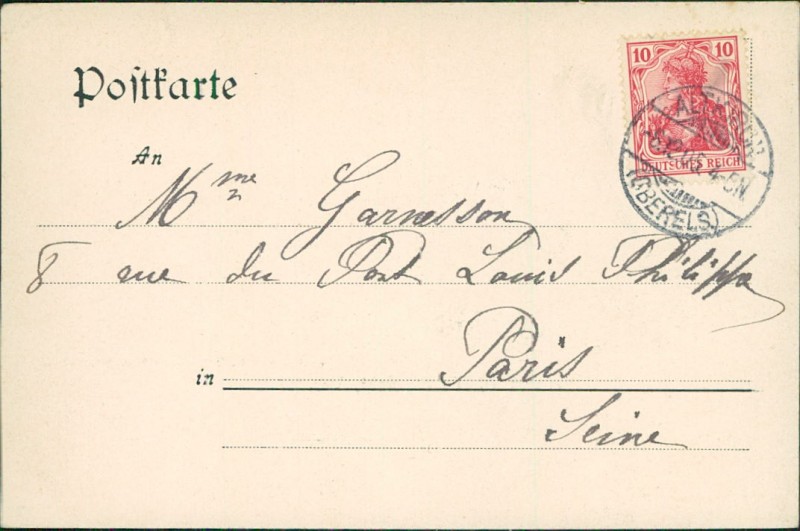 Postkarte
10 10
DEUTSCHES REICH
(OBERELS)
An
Mme Garnesson
8 rue du Pont Louis Philippe
in Paris
Seine